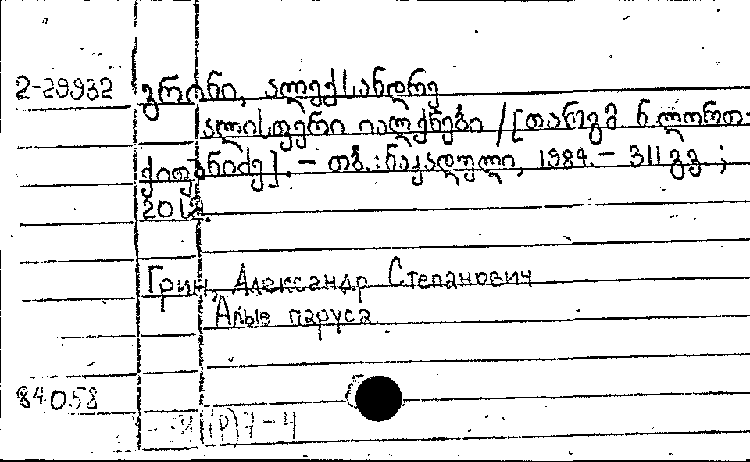 2-29932 გრინი, ალექსანდრე
ალისფერი იალქნები / [თარგმ ნ. ლორთ-
ქიფანიძე]. – თბ.: ნაკადული, 1984. – 311 გვ. ;
20 სმ.
Грин, Александр Степанович
Алые паруса
84.058
(Р)7-4